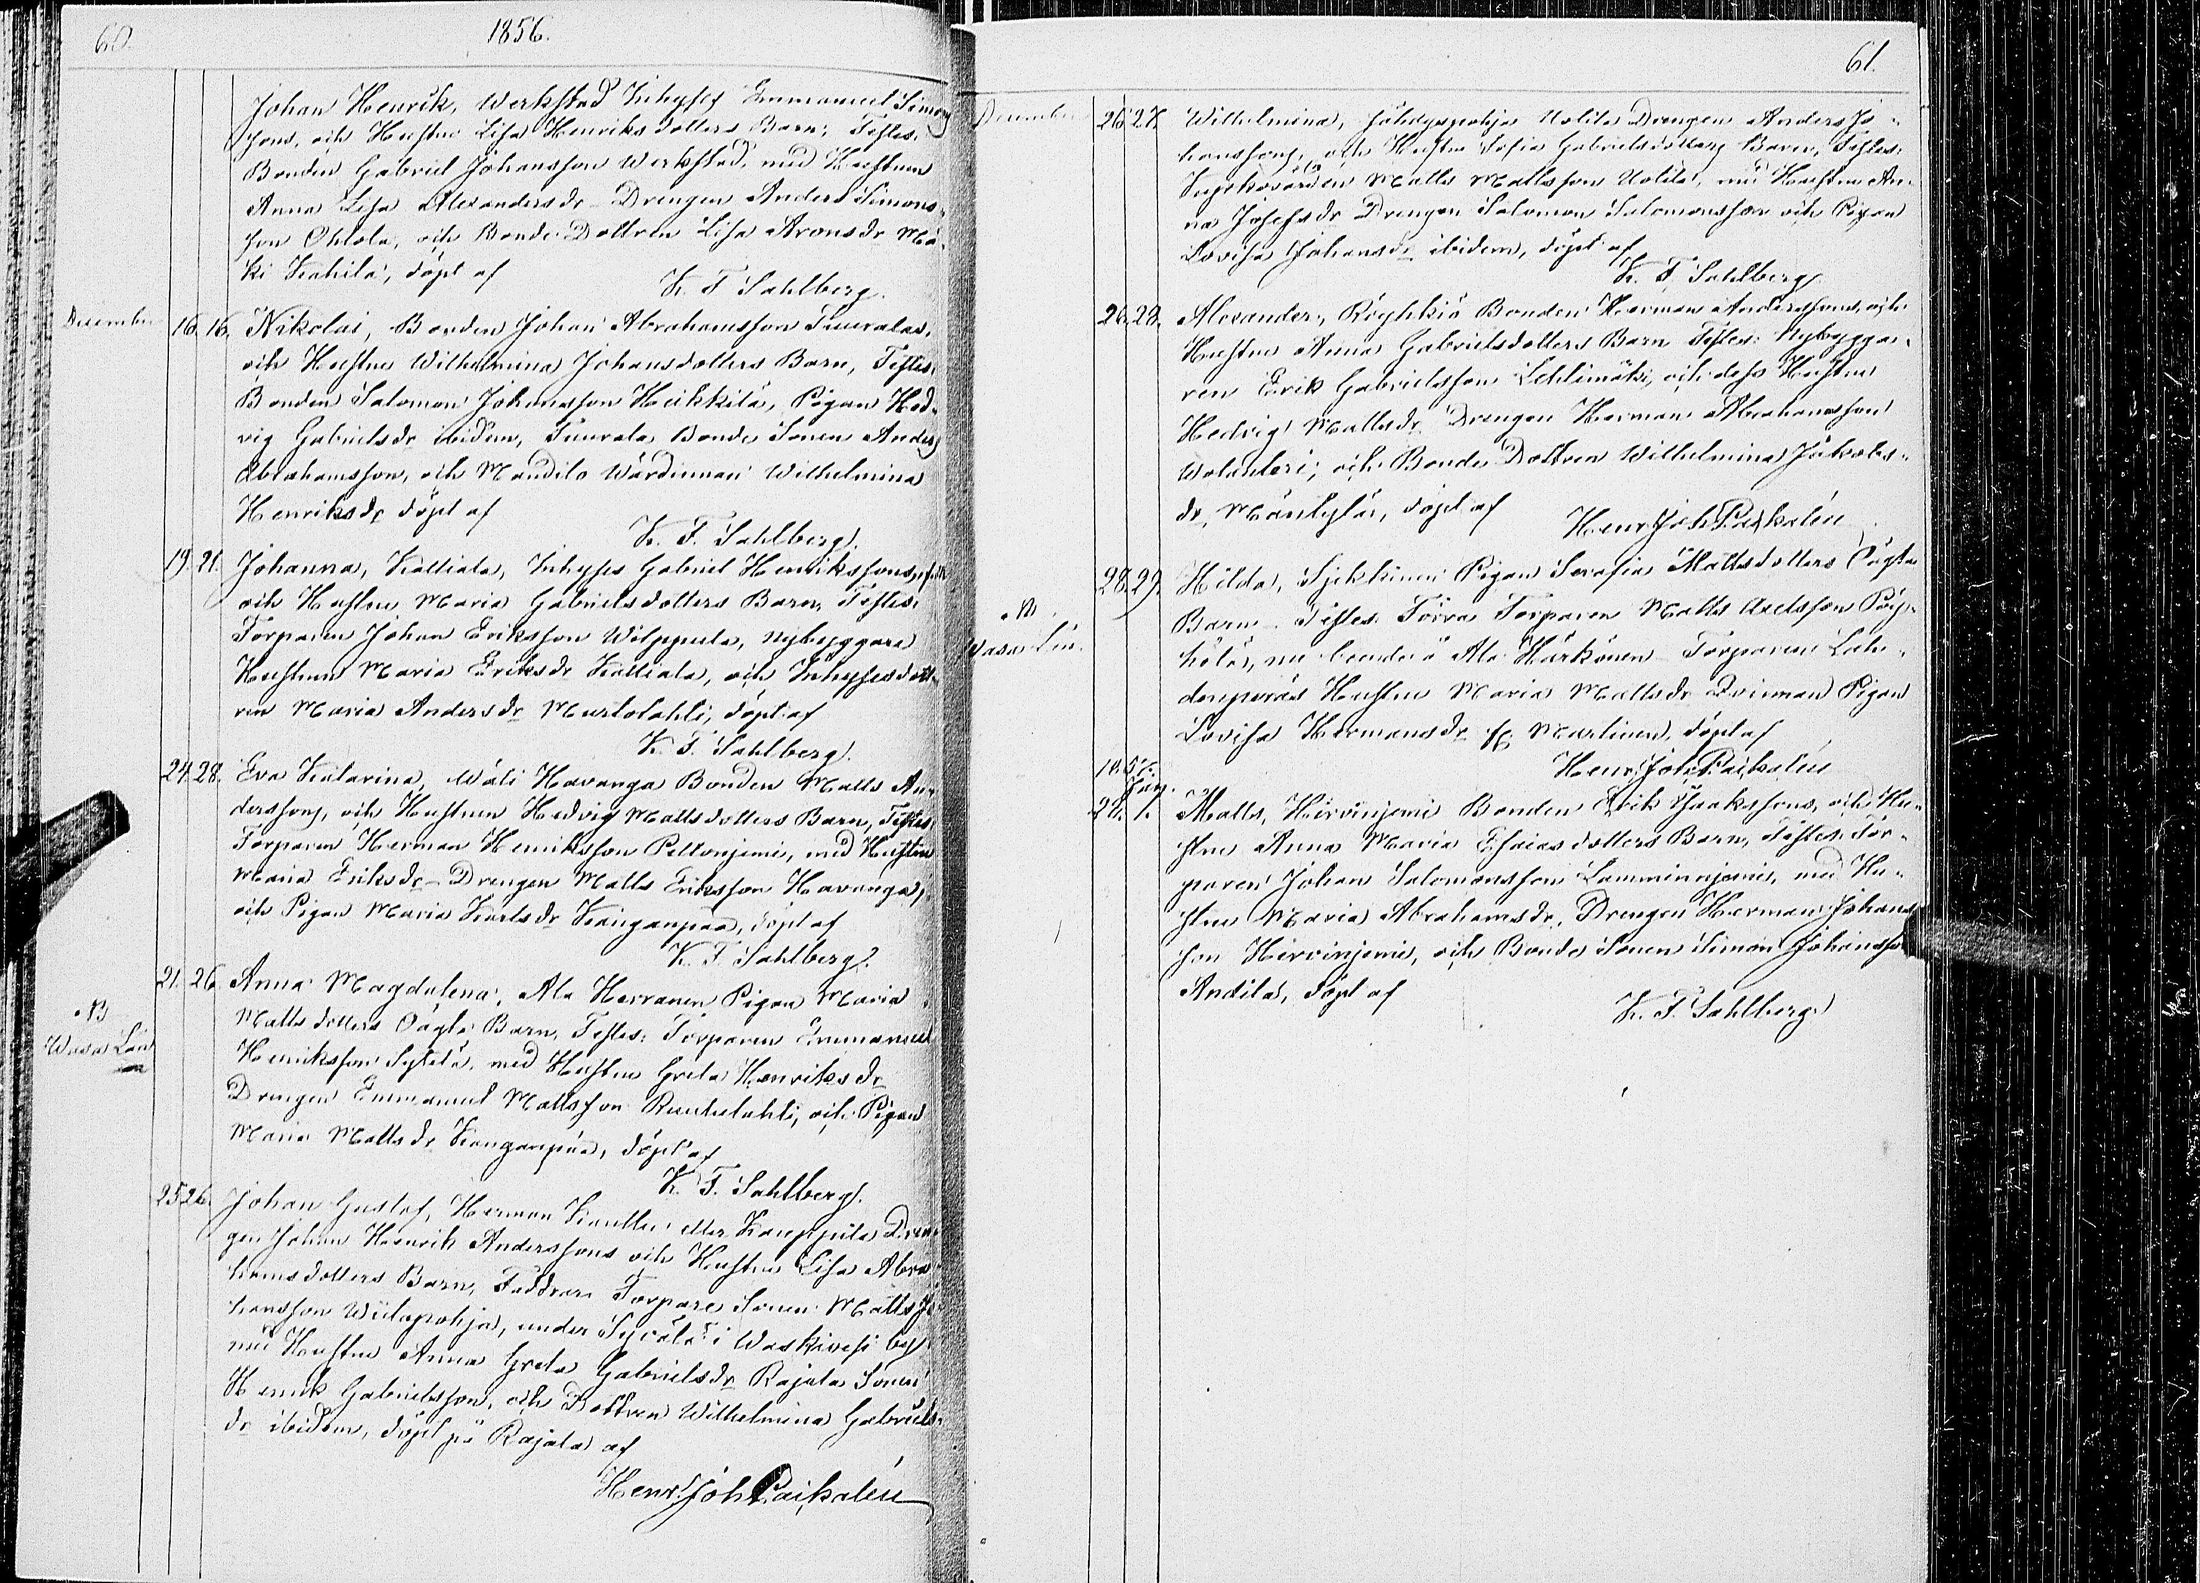 60.
1856.
Johan Henrik, Werkstad Inhyses Emmanuel Simons
sons, och Hustrun Lisa Henriksdotters Barn, Testes:
Bonden Gabriel Johansson Werkstad, med Hustrun
Anna Lisa Alexandersdr Drengen Anders Simons-
son Ohlola, och Bonde Dottren Lisa Aronsdr Mä-
ki Kahila, döpt af
K. F. Sahlberg.
December 16. 16. Nikolai, Bonden Johan Abrahamsson Tuuralas,
och Hustrun Wilhelmina Johansdotters Barn, Testes:
Bonden Salomon Johansson Heikkilä, Pigan Hed-
vig Gabrielsdr ibidem, Tuurala Bonde Sonen Anders
Abrahamsson, och Mandila Wärdinnan Wilhelmina
Henriksdr döpt af
K. F. Sahlberg.
19. 21. Johanna, Kattiala, Inhyses Gabriel Henrikssons,
och Hustrun Maria Gabrielsdotters Barn, Testes:
Torparen Johan Eriksson Wilppula, Nybyggare
Hustrun Maria Eriksdr Kattiala, och Inhysesdott-
ren Maria Andersdr Murtolahti, döpt af
K. F. Sahlberg.
24. 28. Eva Katarina, Wäli Havanga Bonden Matts An-
derssons, och Hustrun Hedvig Mattsdotters Barn, Testes:
Torparen Herman Henriksson Peltonjemi, med Hustrun
Maria Eriksdr Drengen Matts Eriksson Havanga,
och Pigan Maria Karlsdr Kanganpää, döpt af
K. F. Sahlberg.
21. 26. Anna Magdalena, Ala Herranen Pigan Maria
NB
Wasa Län
Mattsdotters Oägta Barn, Testes: Torparen Emmanuel
Henriksson Sylelä, med Hustrun Greta Henriksdr
Drengen Emmanuel Mattsson Ruuhelahti, och Pigan
Maria Mattsdr Kanganpää, döpt af
K. F. Sahlberg.
25. 26. Johan Gustaf, Herman eller Kauppila Dren-
gen Johan Henrik Anderssons och Hustrun Lisa Abra-
hamsdotters Barn, Faddrar: Torpare Sonen Matts Jo-
hansson Wiidapohja, under Syvälä i Waskivesi by
med Hustrun Anna Greta Gabrielsdr Rajala Sonen
Henrik Gabrielsson, och Dottren Wilhelmina Gabriels-
dr ibidem, döpt på Rajala af
Henr. Joh. Paikalén
61.
December 26. 27. Wilhelmina, Uotila Drengen Anders Jo-
hanssons, och Hustrun Sofia Gabrielsdotters Barn, Testes:
Matts Mattsson Uotila, med Hustrun An-
na Josefsdr Drengen Salomon Salomonsson och Pigan
Lovisa Johansdr ibidem, döpt af
K. F. Sahlberg
26. 28. Alexander, Röyhkiö Bonden Herman Anderssons, och
Hustrun Anna Gabrielsdotters Barn Testes: Nybygga-
ren Erik Gabrielsson Lehtimäki, och dess Hustru
Hedvig Mattsdr, Drengen Herman Abrahamsson
Wolanteri, och Bonde Dottren Wilhelmina Jakobs-
dr, Mäntylä, döpt af
Henr. Joh. Paikalén
28. 29. Hilda, Pigan Serafia Mattsdotters Oägta
NB
Wasa Län.
Barn. Testes. Förra Torparen Matts Axelsson Pöy-
hölä, nu boende å Ala Härkönen Torparen
Hustrun Maria Mattsdr Pigan
Lovisa Hermansdr fr Martinen, döpt af
Henr. Joh. Paikalén
18 57.
Jan.
28. 1. Matts, Hirvinjemi Bonden Erik Isakssons, och Hu-
strun Anna Maria Esaiasdotters Barn, Testes: Tor-
paren Johan Salomonsson Lamminnjemi, med Hu-
strun Maria Abrahamsdr, Drengen Herman Johans-
son Hirvinjemi, och Bonde Sonen Simon Johansson
Andila, döpt af
K. F. Sahlberg.